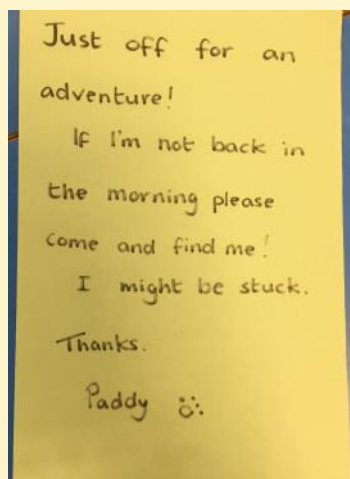 Just off for an
adventure!
If I'm not back in
the morning please
come and find me!
I might be stuck.
Thanks.
Paddy